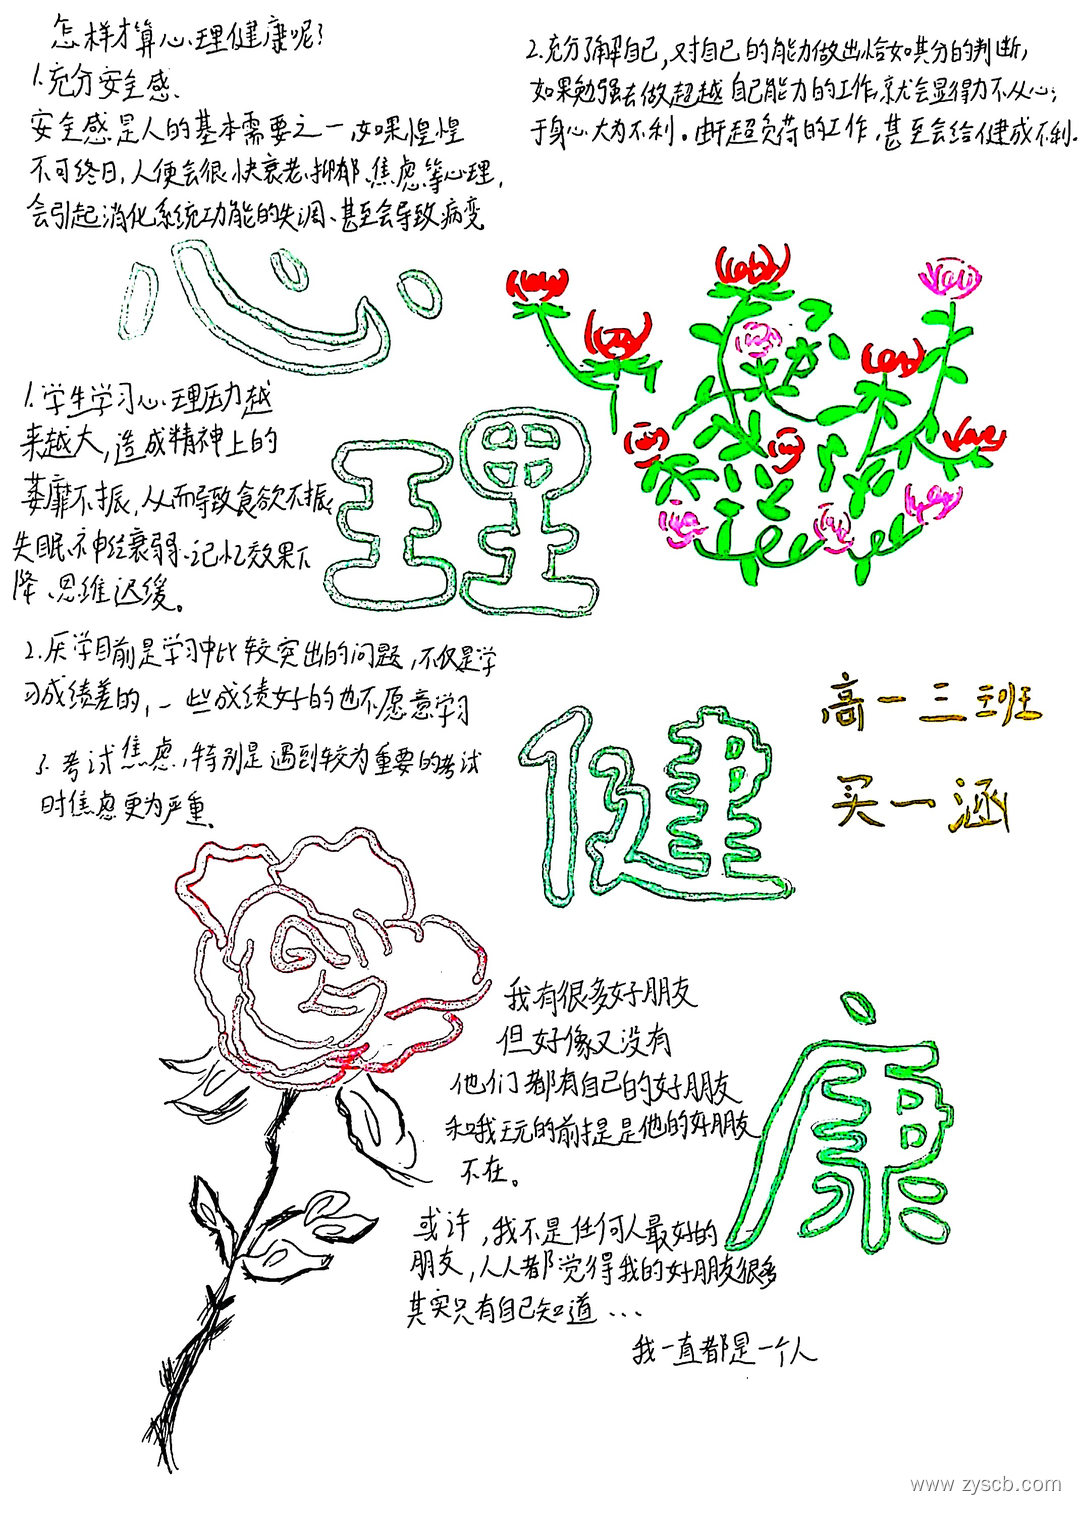 怎样才算心理健康呢?
1.充分安全感、
安全感是人的基本需要之一,如果惶惶
不可终日,人便会很快衰老、抑郁、焦虑等心理,
会引起消化系统功能的失调、甚至会导致病变
2.充分了解自己,又对自己的能力做出恰如其分的判断,
如果勉强去做超越自己能力的工作,就会显得力不从心;
于身心大为不利。由于超负荷的工作,甚至会给健成不利.
心
理
健
康
1.学生学习心理压力越
来越大,造成精神上的
萎靡不振,从而导致食欲不振、
失眠、神经衰弱、记忆效果下
降、思维迟缓。
2.厌学目前是学习中比较突出的问题,不仅是学
习成绩差的,一些成绩好的也不愿意学习
3.考试焦虑,特别是遇到较为重要的考试
时焦虑更为严重、
高一三班
买一涵
我有很多好朋友
但好像又没有
他们都有自己的好朋友
和我玩的前提是他的好朋友
不在。
或许,我不是任何人最好的
朋友,人人都觉得我的好朋友很多
其实只有自己知道...
我一直都是一个人
www.zyscb.com